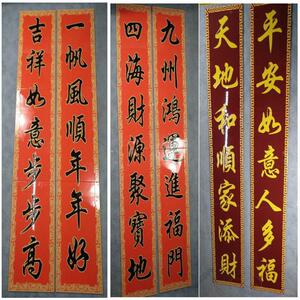 一帆風順年年好
吉祥如意步步高
九州鴻運進福門
四海財源聚寶地
平安如意人多福
天地和順家添財